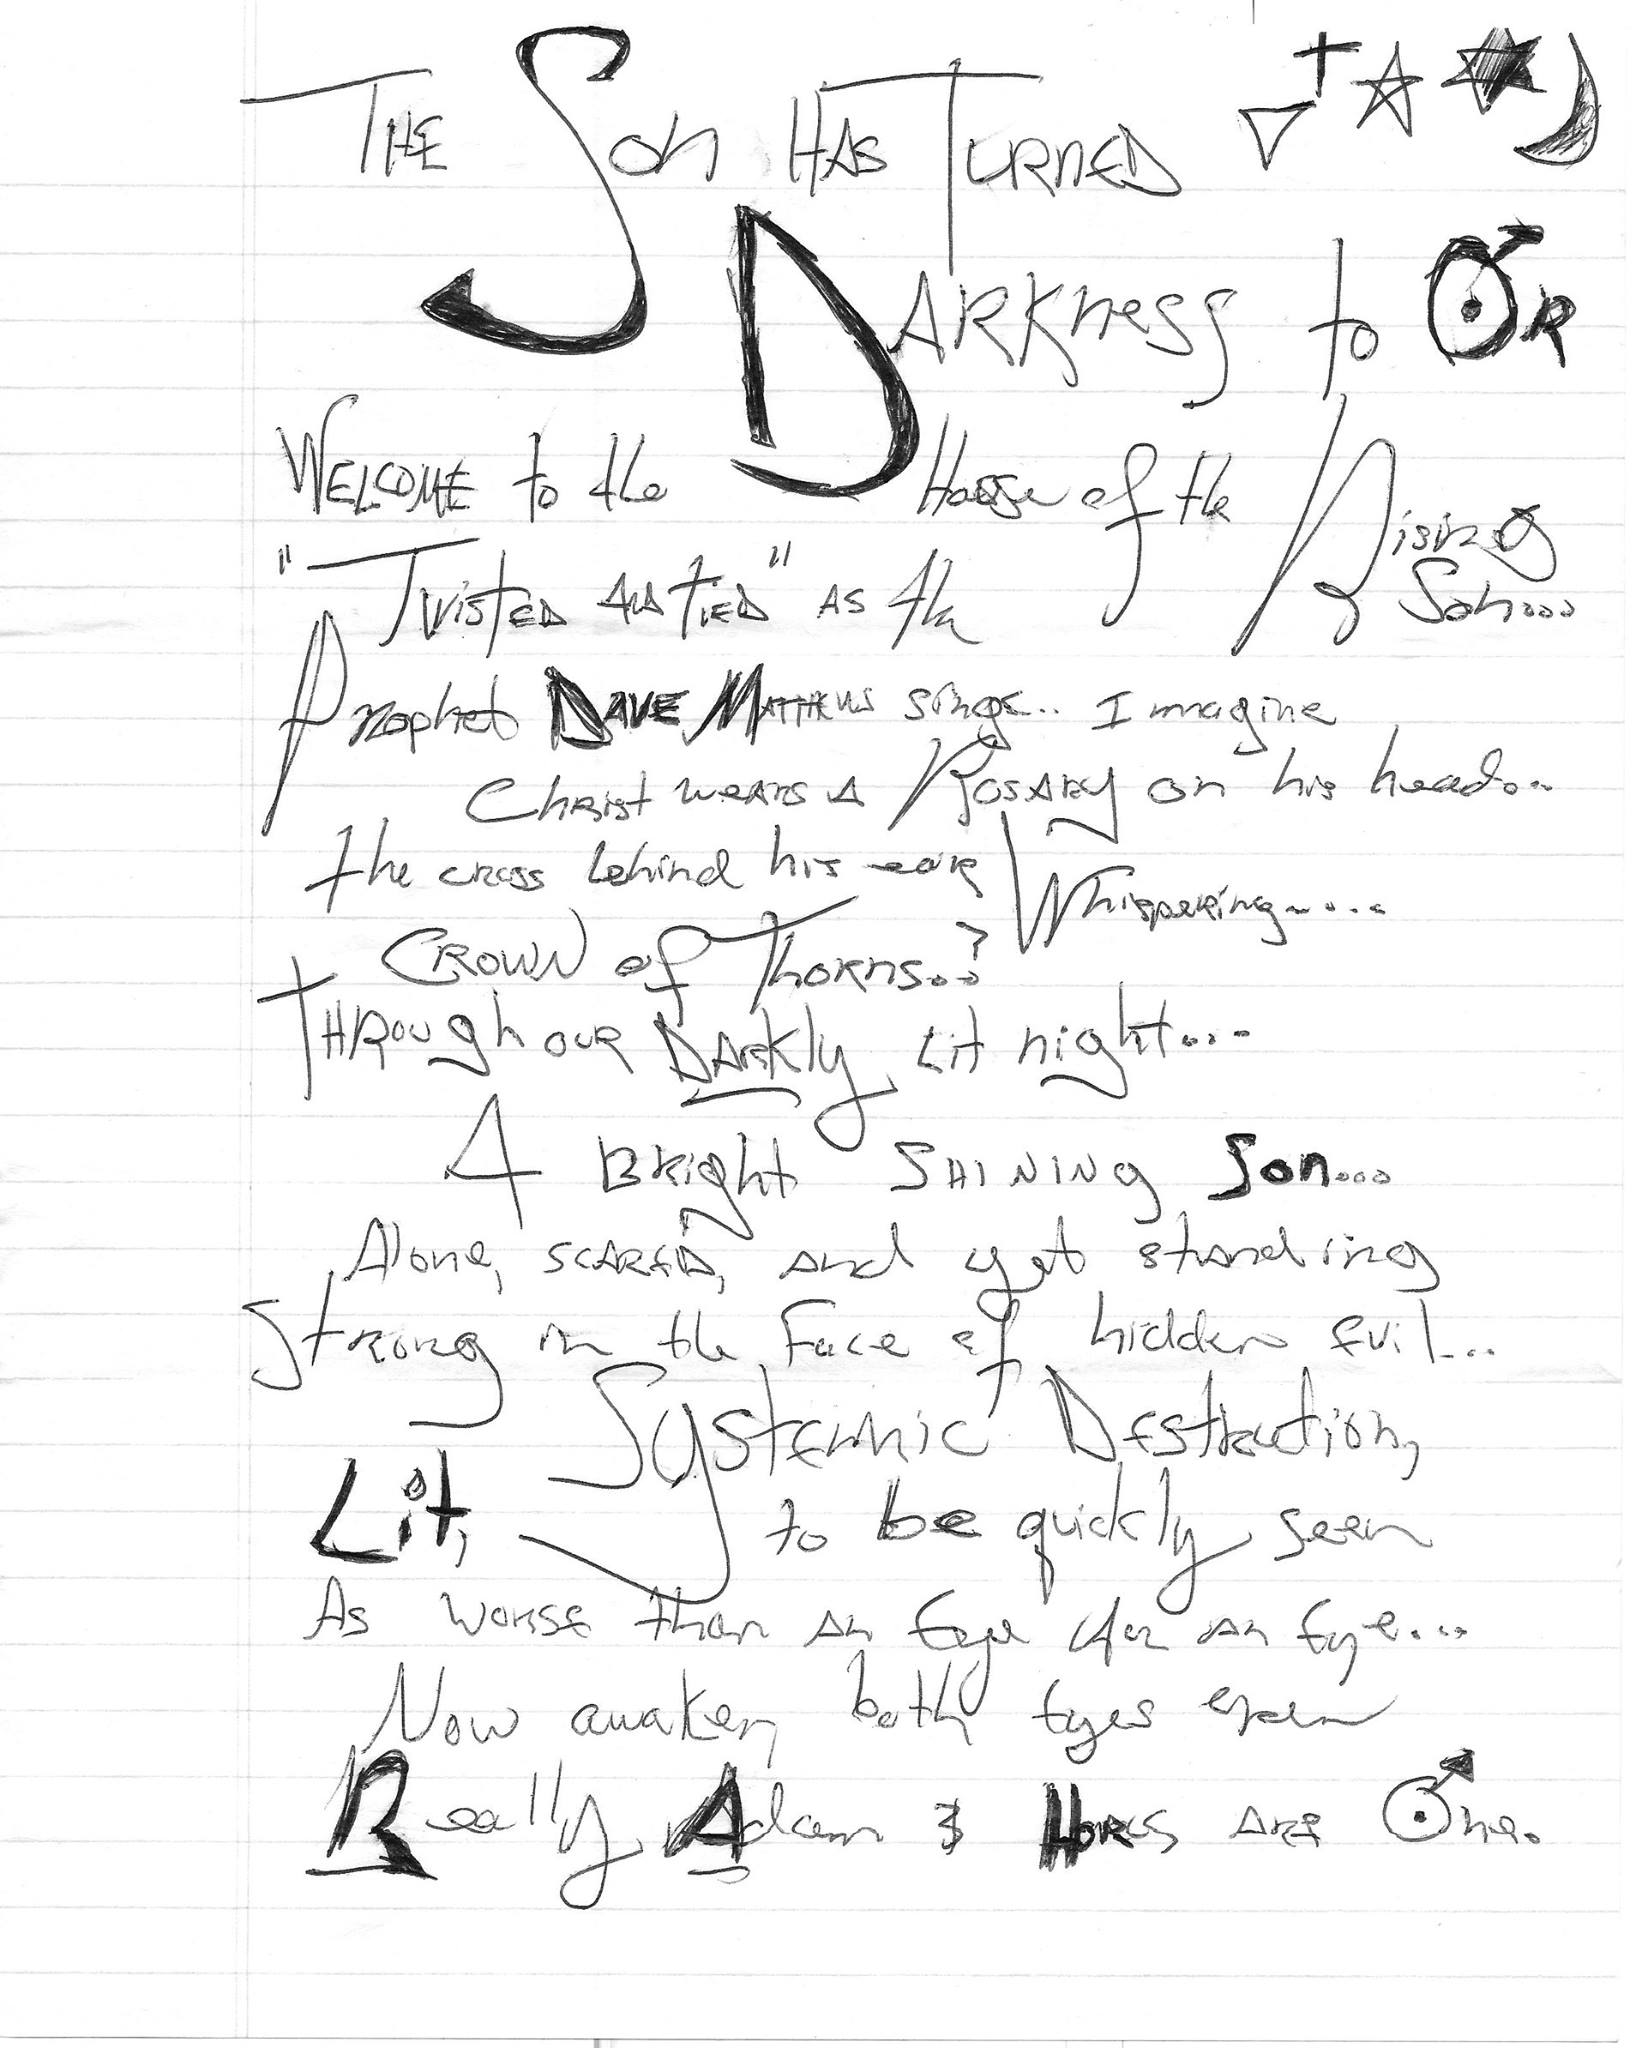 THE Son HAS TURNED
DARKness to OR
WELCOME to the House of the Rising Son...
"Twisted and tied" as the
Prophet DAVE MATTHEWS sings.. Imagine
Christ wears a Rosary on his head...
the cross behind his ear Whispering.....
CROWN of Thorns..?
THROUGh our DARKly Lit night...
A BRight SHINING Son...
Alone, scared, and yet standing
Strong in the Face of hidden Evil...
Systemic Destruction,
Lit, to be quickly seen
As worse than an Eye for an Eye...
Now awaken, both Eyes open
Really Adam & HORUS ARE One.